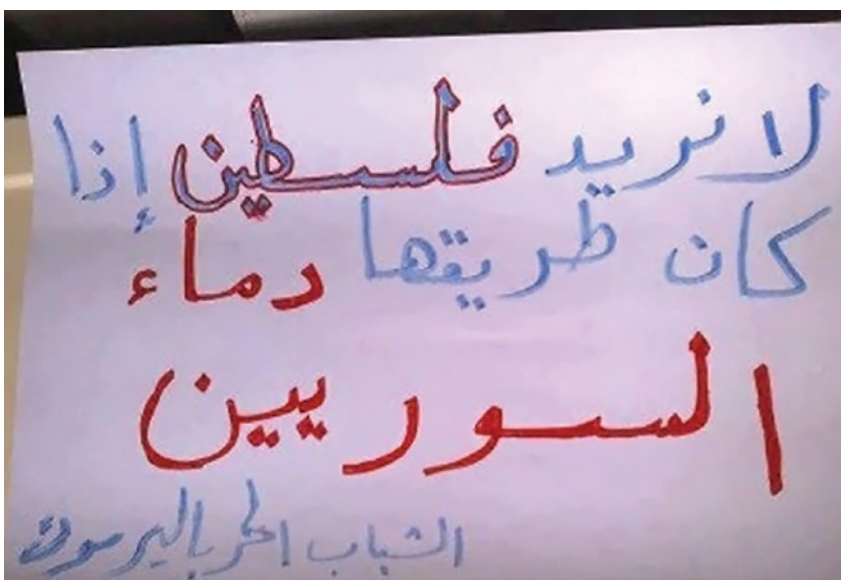 لا نريد فلسطين إذا
كان طريقها دماء
السوريين
الشباب الحر باليرموك